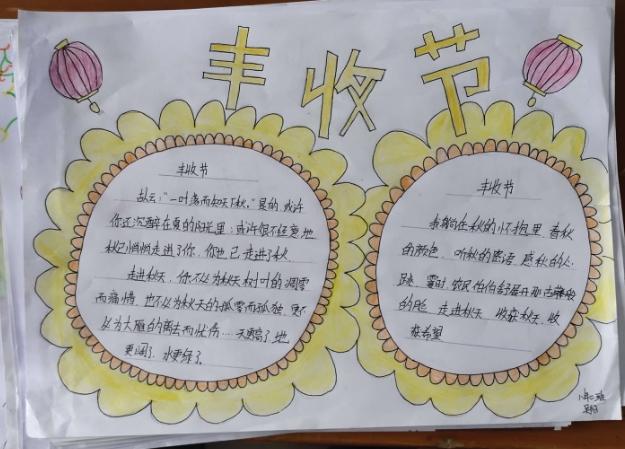 丰收节
丰收节
古云：“一叶落而知天下秋。”是的，或许
你还沉醉在夏的阳光里；或许很不经意地
秋已悄悄走进了你，你也已走进了秋
走进秋天，你不以为秋天树叶的凋零
而痛惜，也不以为秋天的孤零而孤独，更不
以为大雁的南去而忧伤……天更高了，地
更阔了，水更绿了。
丰收节
在秋的怀抱里，看秋
的颜色，听秋的密语，感秋的心
跳，霎时，农民伯伯舒展开那古
的脸，走进秋天，收获秋天，收
获希望
二班